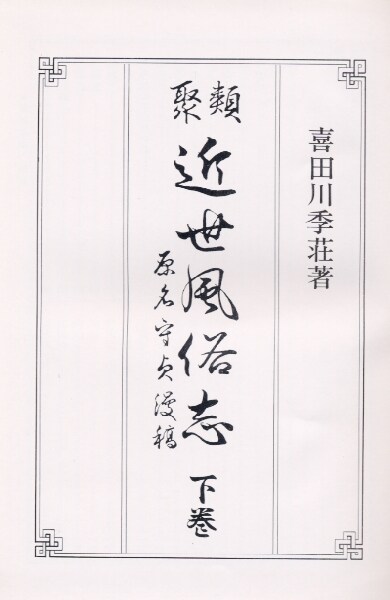 喜田川季荘著
類聚
近世風俗志
下巻
原名守貞漫稿